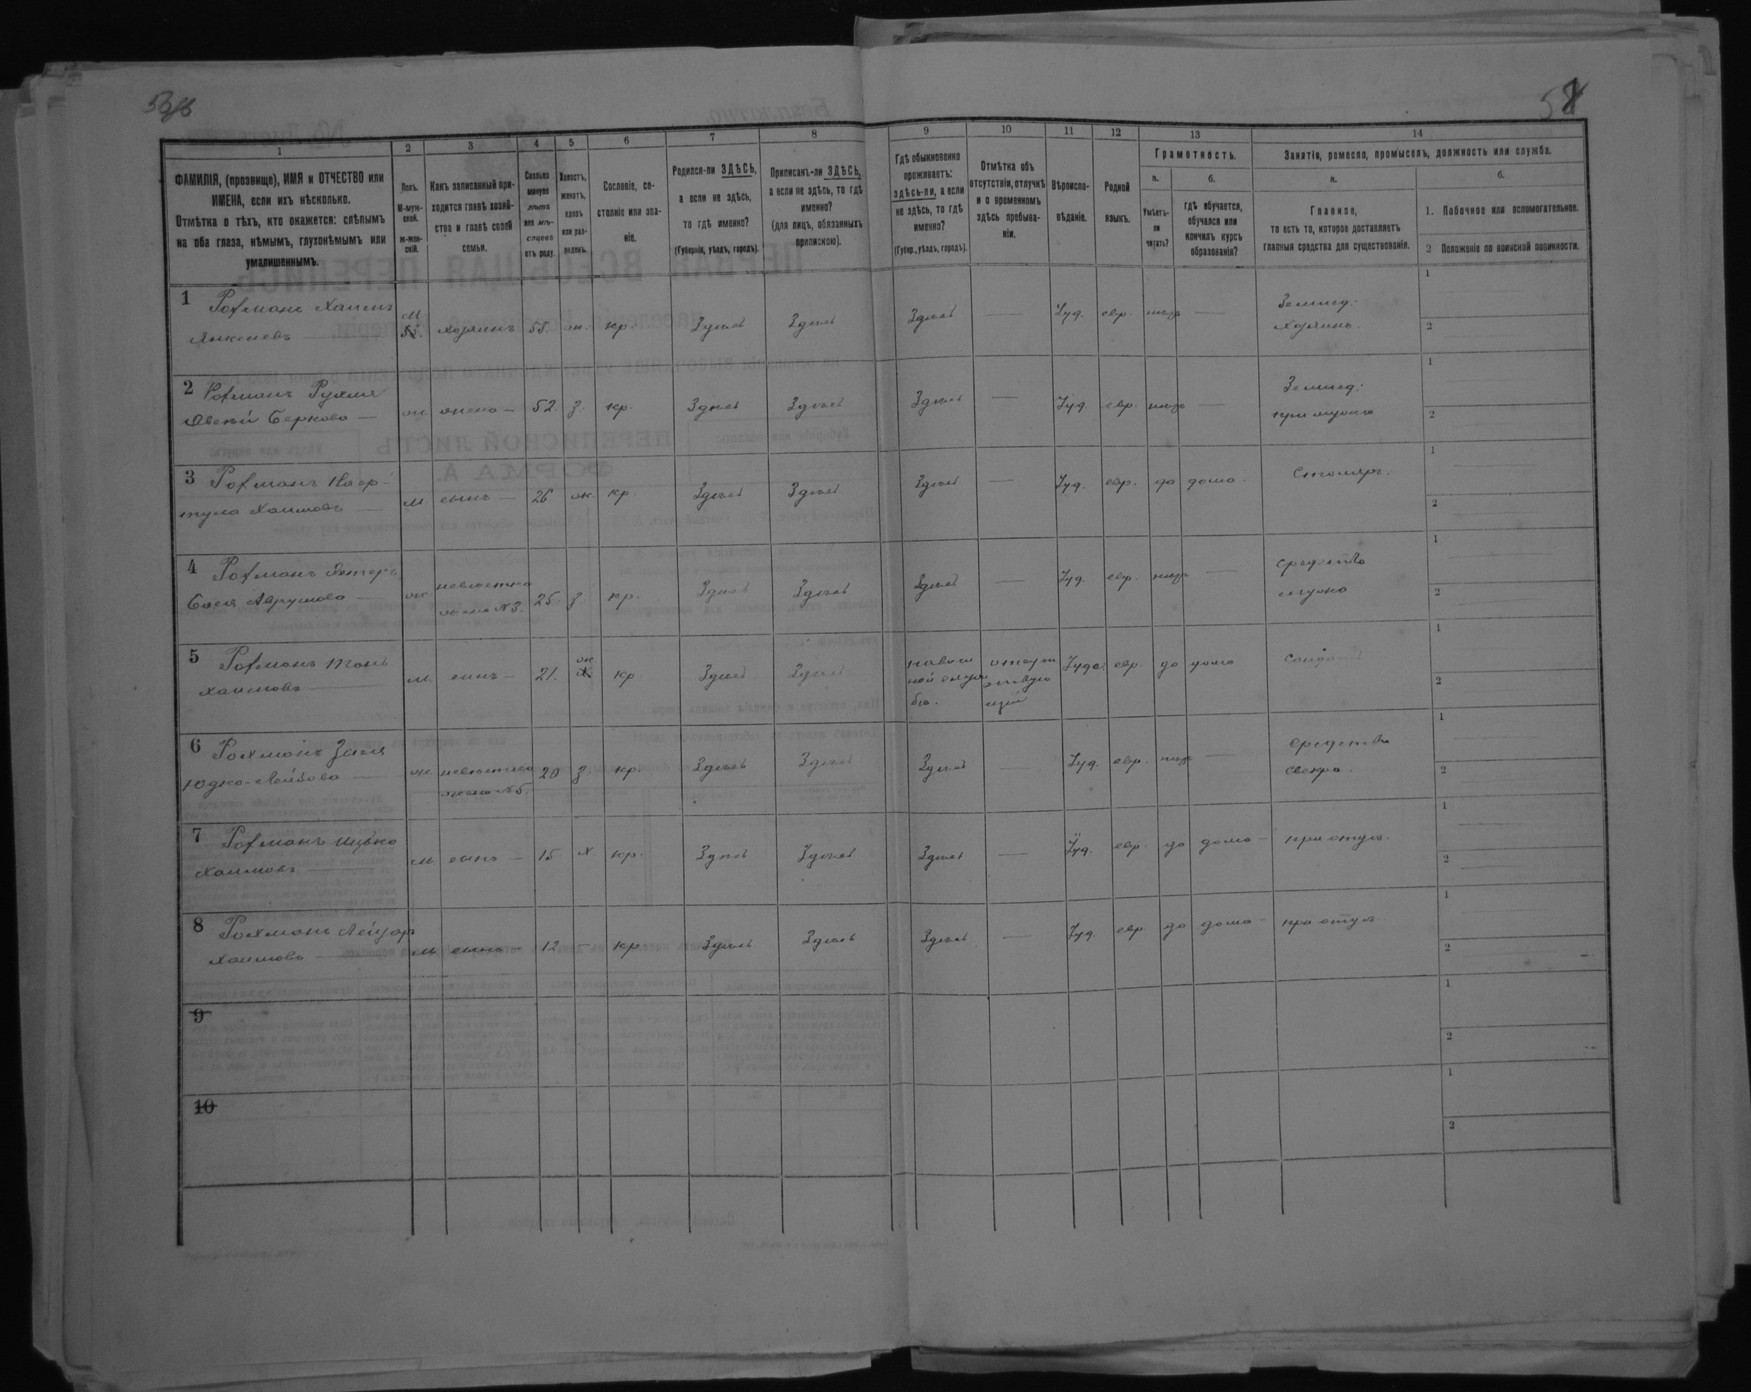 58
1
2
3
4
5
6
7
8
9
10
11
12
13
14
ФАМИЛІЯ, (прозвище), ИМЯ и ОТЧЕСТВО или
ИМЕНА, если ихъ нѣсколько.
Отмѣтка о тѣхъ, кто окажется: слѣпымъ
на оба глаза, нѣмымъ, глухонѣмымъ или
умалишеннымъ.
Полъ.
М-муж-
ской.
Ж-жен-
скій.
Какъ записанный при-
ходится главѣ хозяй-
ства и главѣ своей
семьи.
Сколько
минуло
лѣтъ
или мѣ-
сяцевъ
отъ роду.
Холостъ,
женатъ,
вдовъ
или раз-
веденъ.
Сословіе, со-
стояніе или зва-
ніе.
Родился-ли ЗДѢСЬ,
а если не здѣсь,
то гдѣ именно?
(Губернія, уѣздъ, городъ).
Приписанъ-ли ЗДѢСЬ,
а если не здѣсь, то гдѣ
именно?
(для лицъ, обязанныхъ
припискою).
Гдѣ обыкновенно
проживаетъ:
здѣсь-ли, а если
не здѣсь, то гдѣ
именно?
(Губер., уѣздъ, городъ).
Отмѣтка объ
отсутствіи, отлучкѣ
и о временномъ
здѣсь пребыва-
ніи.
Вѣроиспо-
вѣданіе.
Родной
языкъ.
Грамотность.
а.
Умѣетъ-
ли
читать?
б.
гдѣ обучается,
обучался или
кончилъ курсъ
образованія?
Занятіе, ремесло, промыселъ, должность или служба.
а.
Главное,
то есть то, которое доставляетъ
главныя средства для существованія.
б.
1. Побочное или вспомогательное.
2 Положеніе по воинской повинности.
1 Рохманъ Хаимъ
Янкелевъ
М хозяинъ 55. ж. кр. Здѣсь Здѣсь Здѣсь — Іуд. евр. нѣтъ —
Земвед.
Хозяинъ.
1
2
2 Рохманъ Рухля
Двейй Беркова —
ж жена — 52. з. кр. Здѣсь Здѣсь Здѣсь — Іуд. евр. нѣтъ —
Земвед.
при мужѣ
1
2
3 Рохманъ
Хаимовъ —
м сынъ — 26 ж кр. Здѣсь Здѣсь Здѣсь — Іуд. евр. да дома. Столяръ.
1
2
4 Рохманъ Эстеръ
Бася Аврумова —
ж невѣстка
жена №3. 25. з. кр. Здѣсь Здѣсь Здѣсь — Іуд. евр. нѣтъ —
средства
мужа
1
2
5 Рохманъ
Хаимовъ —
м. сынъ — 21. ж кр Здѣсь Здѣсь
отсут
ствую
щій
Іуде. евр. да дома Солдатъ
1
2
6 Рохманъ Зася
Юдко-Лейбова —
ж невѣстка
жена №5. 20 з. кр. Здѣсь Здѣсь Здѣсь — Іуд. евр. нѣтъ —
средства
свекра.
1
2
7 Рохманъ Ицько
Хаимовъ —
м сынъ — 15 х кр. Здѣсь Здѣсь Здѣсь — Іуд. евр. да дома — при отцѣ.
1
2
8 Рохманъ Лейзоръ
Хаимовъ —
м сынъ — 12 — кр Здѣсь Здѣсь Здѣсь — Іуд. евр. да дома — при отцѣ
1
2
9
1
2
10
1
2